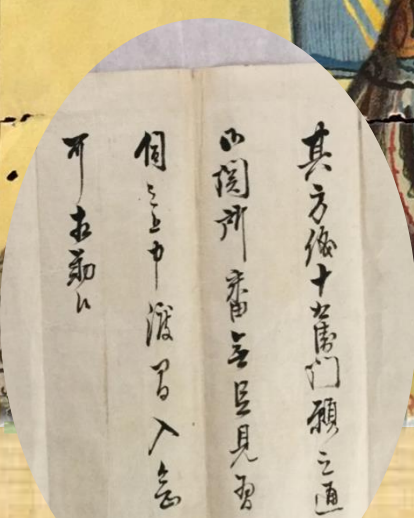 其方儀十衛門願之通
御関所番無足見習
伺之上申渡間入念
可相勤候